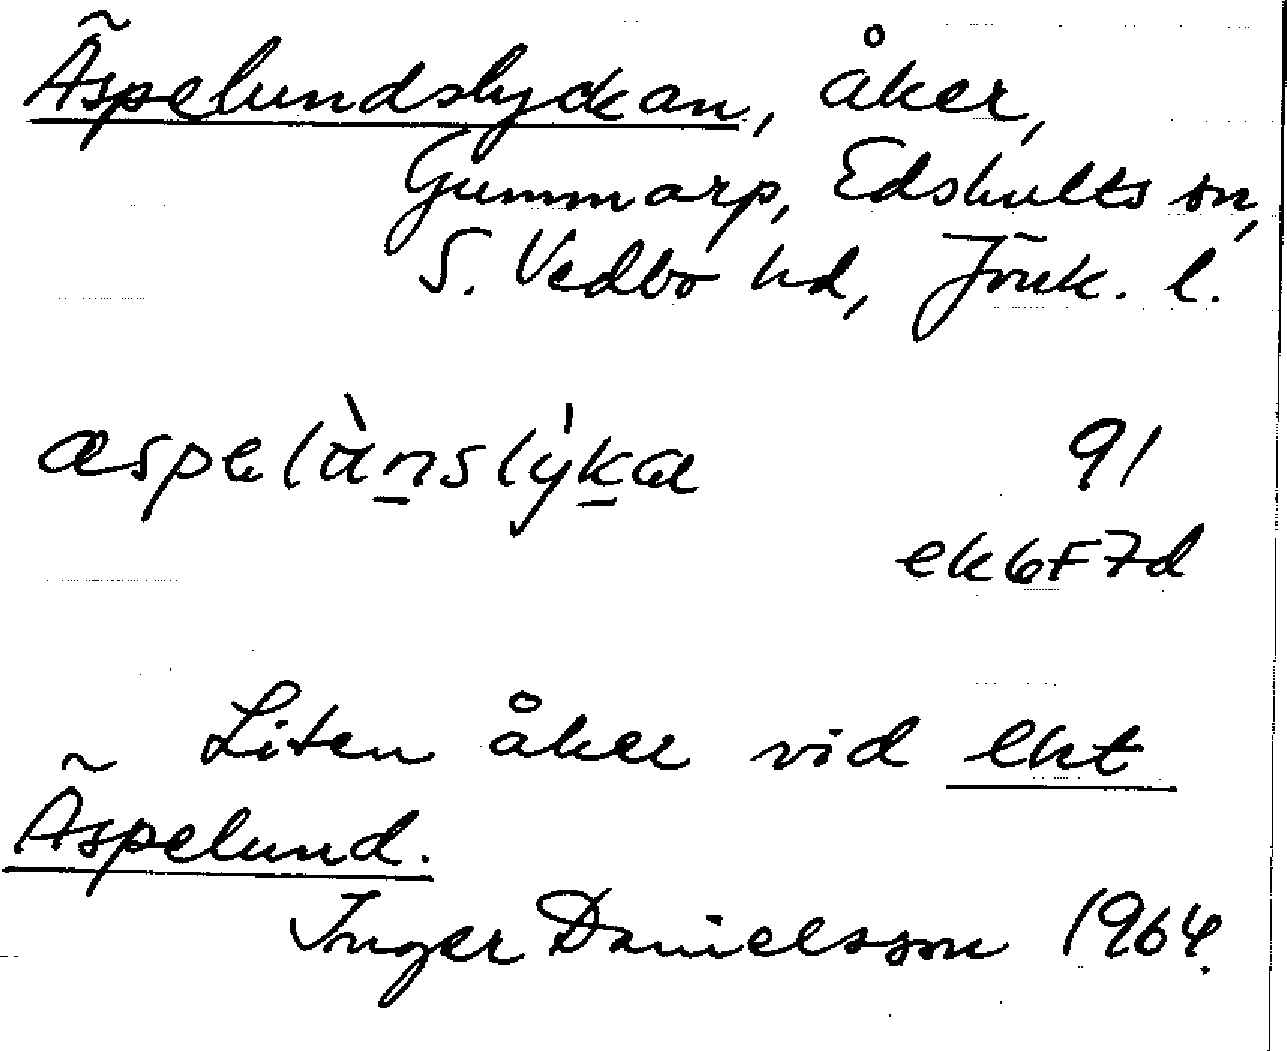 Äspelundslyckan, åker,
Gummarp, Edshults sn,
S. Vedbo hd, Jönk. l.
æspelànslýka 91
ek6F7d
Liten åker vid lht
Äspelund.
Inger Danielsson 1964.